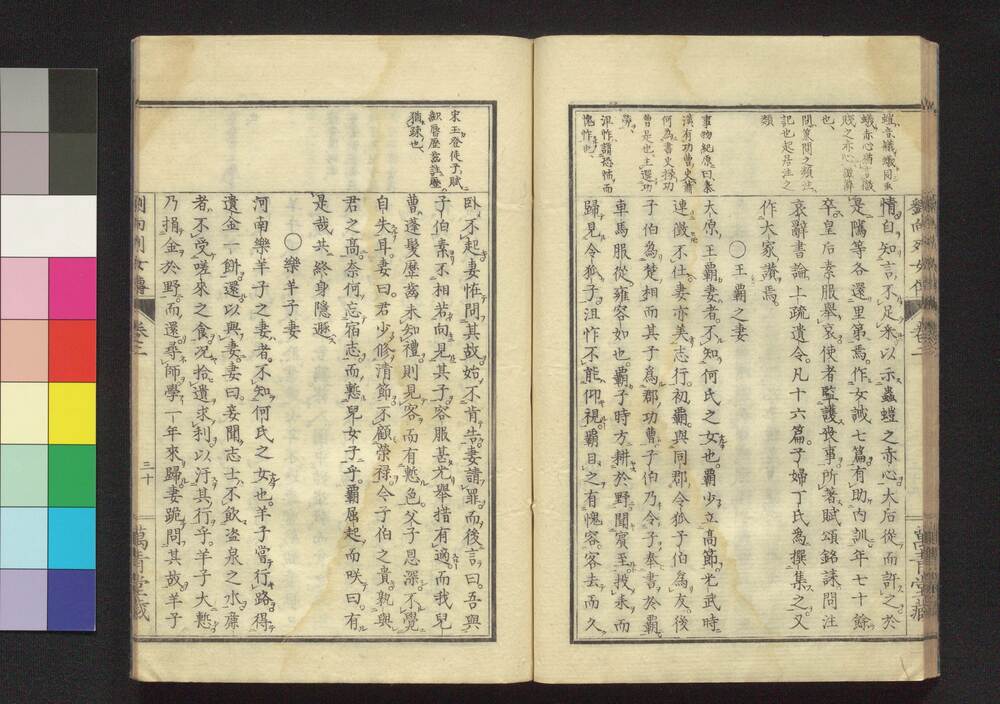 情自知言不足采以示蟲螘之赤心太后從而許之於
是隲等各還里第焉作女誡七篇有助內訓年七十餘
卒皇后素服舉哀使者監護喪事所著賦頌銘誄問注
哀辭書論上疏遺令凡十六篇子婦丁氏為撰集之又
作大家讚焉
〇王霸之妻
太原王霸妻者不知何氏之女也霸少立高節光武時
連徵不仕妻亦美志行初霸與同郡令狐子伯為友後
子伯為楚相而其子為郡功曹子伯乃令子奉書於霸
車馬服從雍容如也霸子時方耕於野聞賓至投耒而
歸見令狐子沮怍不能仰視霸目之有愧容客去而久
事物紀原曰秦
漢有功曹史蕭
何為書史掾功
曹是也主選功
勞
沮怍謂恐怖而
愧怍也
類
臥不起妻怪問其故始不肯告妻請罪而後言曰吾與
子伯素不相若向見其子容服甚光舉措有適而我兒
曹蓬髮歷齒未知禮則見客而有慙色父子恩深不覺
自失耳妻曰君少修清節不顧榮祿今子伯之貴孰與
君之高奈何忘宿志而慙兒女子乎霸屈起而咲曰有
是哉共終身隱遯
〇樂羊子妻
河南樂羊子之妻者不知何氏之女也羊子嘗行路得
遺金一餅還以與妻妻曰妾聞志士不飲盜泉之水廉
者不受嗟來之食況拾遺求利以汙其行乎羊子大慙
乃捐金於野而還尋師學一年來歸妻跪問其故羊子
宋玉登徒子賦
齞脣歷齒註歷
猶疎也
劉向列女傳
卷二
三十
萬青堂藏